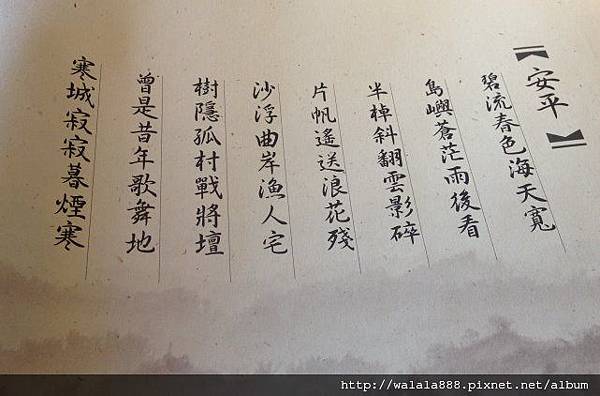 【安平】
碧流春色海天寬
島嶼蒼茫雨後看
半棹斜翻雲影碎
片帆遙送浪花殘
沙浮曲岸漁人宅
樹隱孤村戰將壇
曾是昔年歌舞地
寒城寂寂暮煙寒
http://walala888.pixnet.net/album